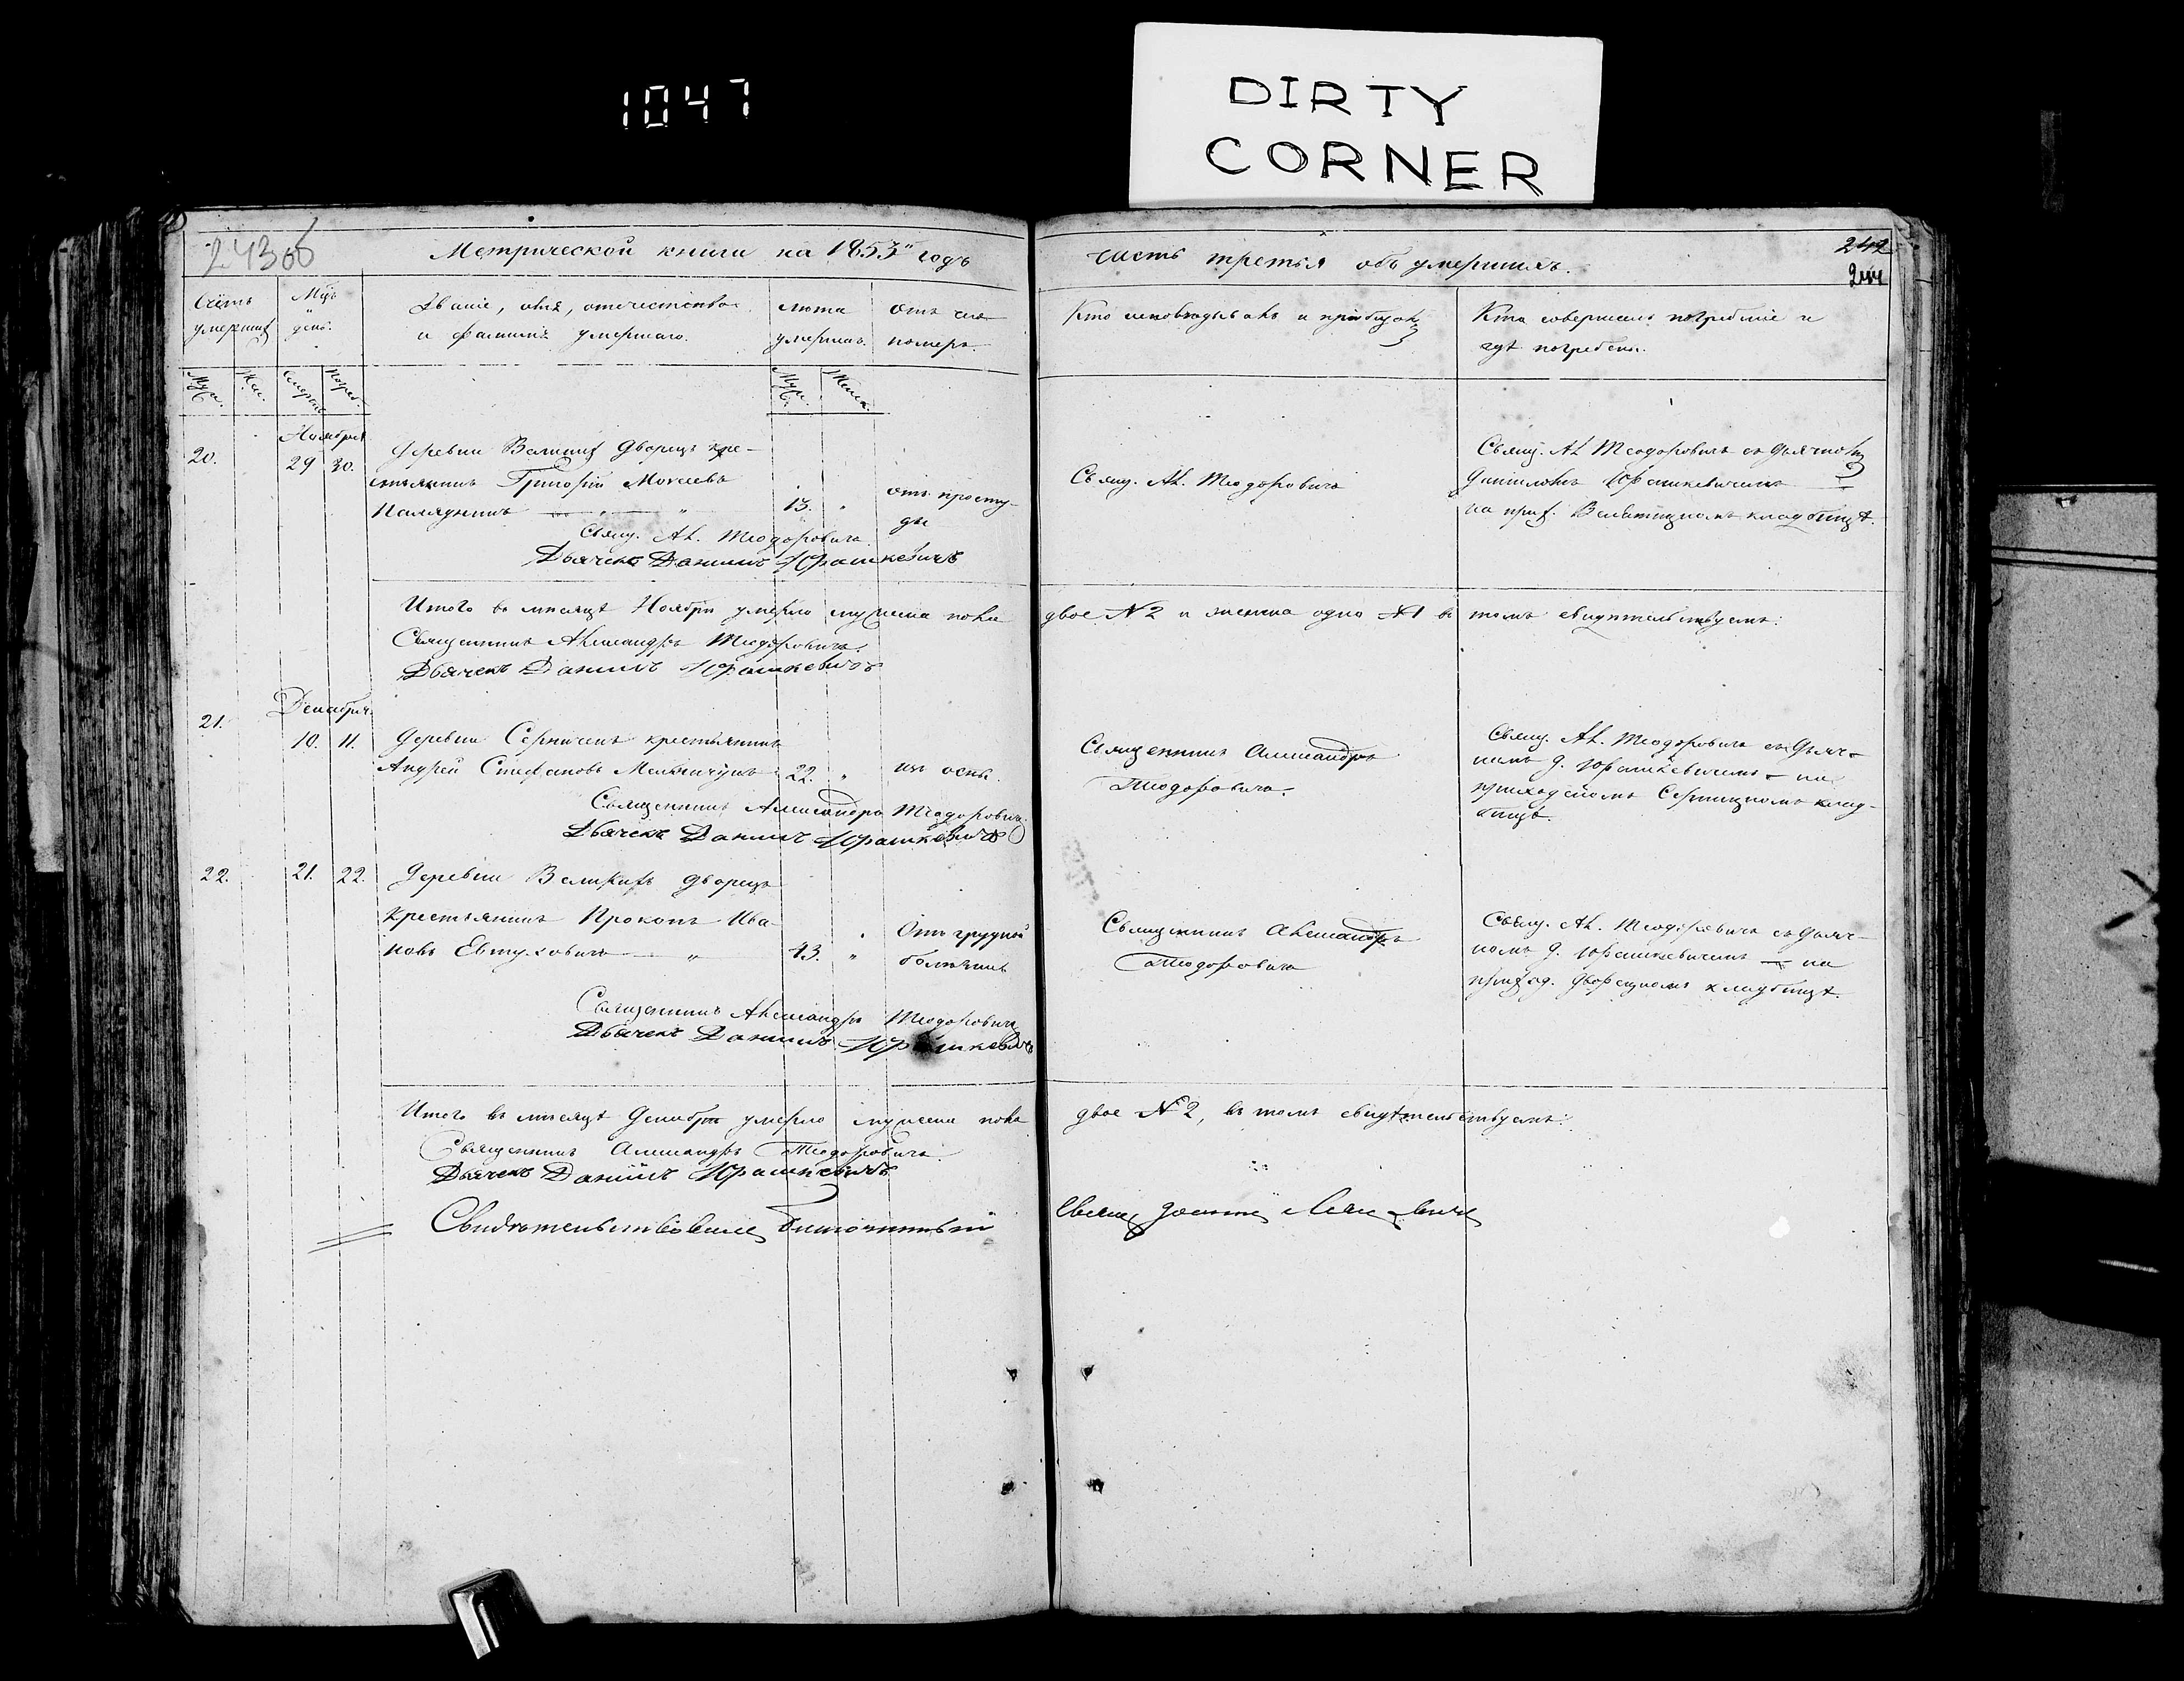 1047
DIRTY
CORNER
243об
Метрической книги на 1853й годъ
часть третья объ умершихъ.
242
244
Счетъ умершихъ
Мцъ и день.
Званіе, имя, отечество и фамилія умершаго.
лета умершаго.
отъ чего померъ.
Кто исповѣдывалъ и пріобщалъ
Кто совершалъ погребеніе и гдѣ погребенъ.
Муж.
Жен.
Смерти
Погреб.
Муж.
Женск.
Ноября
20.
29 30.
Деревни Великихъ Дворецъ кре-
стьянинъ Григорій Моисеевъ
13.
отъ просту-
ды
Свящ. Ал. Теодоровичъ
Дьячекъ Даніилъ Юрашкевичъ
Свящ. Ал. Теодоровичъ
Свящ. Ал Теодоровичъ съ Дьячкомъ
Данииломъ Юрашкевичемъ
на прих. кладбищѣ.
Итого въ мѣсяцѣ Ноябрѣ умерло мужеска пола
двое № 2 и женска одно № 1 въ томъ свидѣтельствуемъ:
Священникъ Александръ Теодоровичъ.
Дьячекъ Даніилъ Юрашкевичъ
Декабря.
21.
10. 11.
Деревни крестьянинъ
Андрей Стефановъ Мельничукъ
22. "
изъ оспы.
Священникъ Александръ Теодоровичъ
Дьячекъ Даніилъ Юрашкевичъ
Священникъ Александръ
Теодоровичъ.
Свящ. Ал. Теодоровичъ съ Дьяч-
комъ Д. Юрашкевичемъ - на
приходскомъ клад-
бищѣ.
22.
21. 22.
Деревни Великихъ Дворецъ
Крестьянинъ Прокопъ Ива-
новъ Евтуховичъ — "
43. "
Отъ грудной
болѣзни
Священникъ Александръ Теодоровичъ
Дьячекъ Даніилъ Юрашкевичъ
Священникъ Александръ
Теодоровичъ
Свящ. Ал. Теодоровичъ съ Дьяч-
комъ Д. Юрашкевичемъ — на
приход. Дворецкомъ кладбищѣ.
Итого въ мѣсяцѣ Декабрѣ умерло мужеска пола
двое № 2, въ томъ свидѣтельствуемъ:
Священникъ Александръ Теодоровичъ.
Дьячекъ Даніилъ Юрашкевичъ
Свидѣтельствовалъ Благочинный